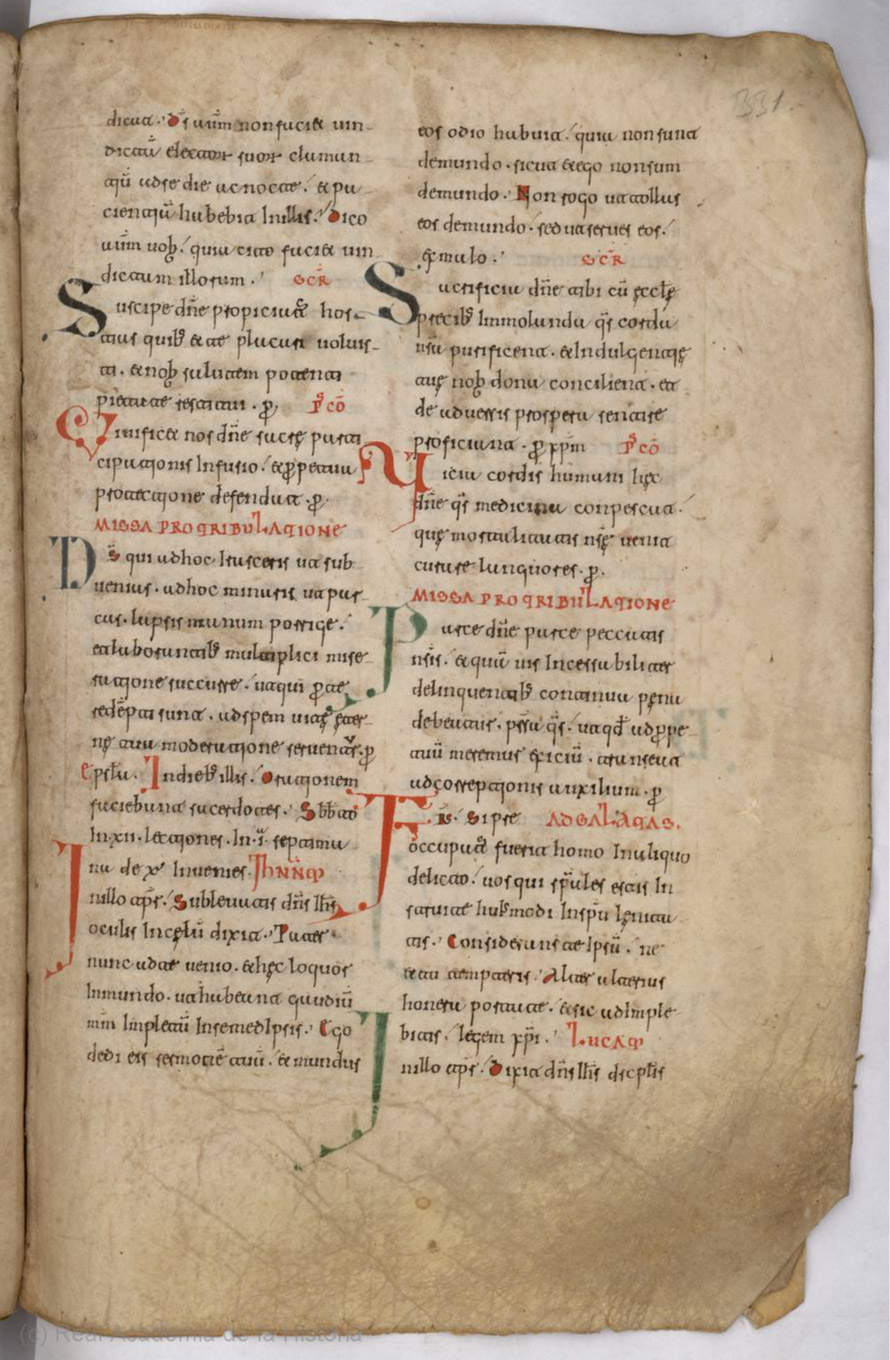 dicit. Ds̄ aūm non faciet uin-
dictaū electorum suorum claman-
tiū ad se die ac nocte. & pa-
cientiā habebit In illis. Dico
aūm uob̄. quia cito faciet uin-
dictam illorum. SCR̄
Suscipe dn̄e propiciatus hos-
tias quib; & te placari uoluis-
ti. & nob̄ salutem potenti
pietate restitui. p̄. P̄ cō
Uiuificet nos dn̄e sacrę parti-
cipationis Infusio. & p̄petua
protectione defendat. p̄.
MISSA PRO TRIBULATIONE
Ds̄ qui ad hoc Irasceris ut sub-
uenias. ad hoc minaris ut par-
cas. lapsis manum porrige.
et laborantib; multiplici mise-
ratione succurre. ut qui p̄ te
redēpti sunt. ad spem uitę ęter-
nę tua moderatione seruentur. p̄
Epstl̄a. In dieb; illis. Orationem
faciebant sacerdotes. Sbb̄ato
In xii. lectiones. In .i. septima-
na de xl Inuenies. Ihn̄n̄m
In illo tp̄s. Subleuatis dn̄s Ih̄s
oculis In cęlū dixit. Pater
nunc ad te uenio. & hęc loquor
In mundo. ut habeant gaudiū
mm̄ Impletū In semedIpsis. Ego
dedi eis sermonē tuū. & mundus
331.
eos odio habuit. quia non sunt
de mundo. sicut & ego non sum
de mundo. Non rogo ut tollas
eos de mundo. sed ut serues eos.
ex malo. SCR̄
Sacrificiū dn̄e tibi cū ęccl̄ę
precib; Immolanda q̄s corda
nr̄a purificent. & Indulgentię
tuę nob̄ dona concilient. et
de aduersis prospera sentire
proficiant. p̄ xp̄m P̄ cō
Uicia cordis humani hęc
dn̄e q̄s medicina conpescat.
quę mortalitatis nr̄ę uenit
curare languores. p̄.
MISSA PRO TRIBULATIONE
Parce dn̄e parce peccatis
nr̄is. & quāuis Incessabiliter
delinquentib; continua pena
debeatur. pr̄sta q̄s. ut qd̄ ad p̄pe-
tuū meremur exiciū. transeat
ad correptionis auxilium. p̄
Fr̄s. Si pre AD GALATAS.
occupatus fuerit homo In aliquo
delicto. uos qui sp̄ules estis In-
struite hui;modi In sp̄u lenita-
tis. Considerans te Ipsū. ne
et tu tempteris. Alter alterius
honera portate. & sic adImple-
bitis. legem xp̄i. LUCAM
In illo tp̄s. Dixit dn̄s Ih̄s dscpl̄is
(c) Real Academia de la Historia